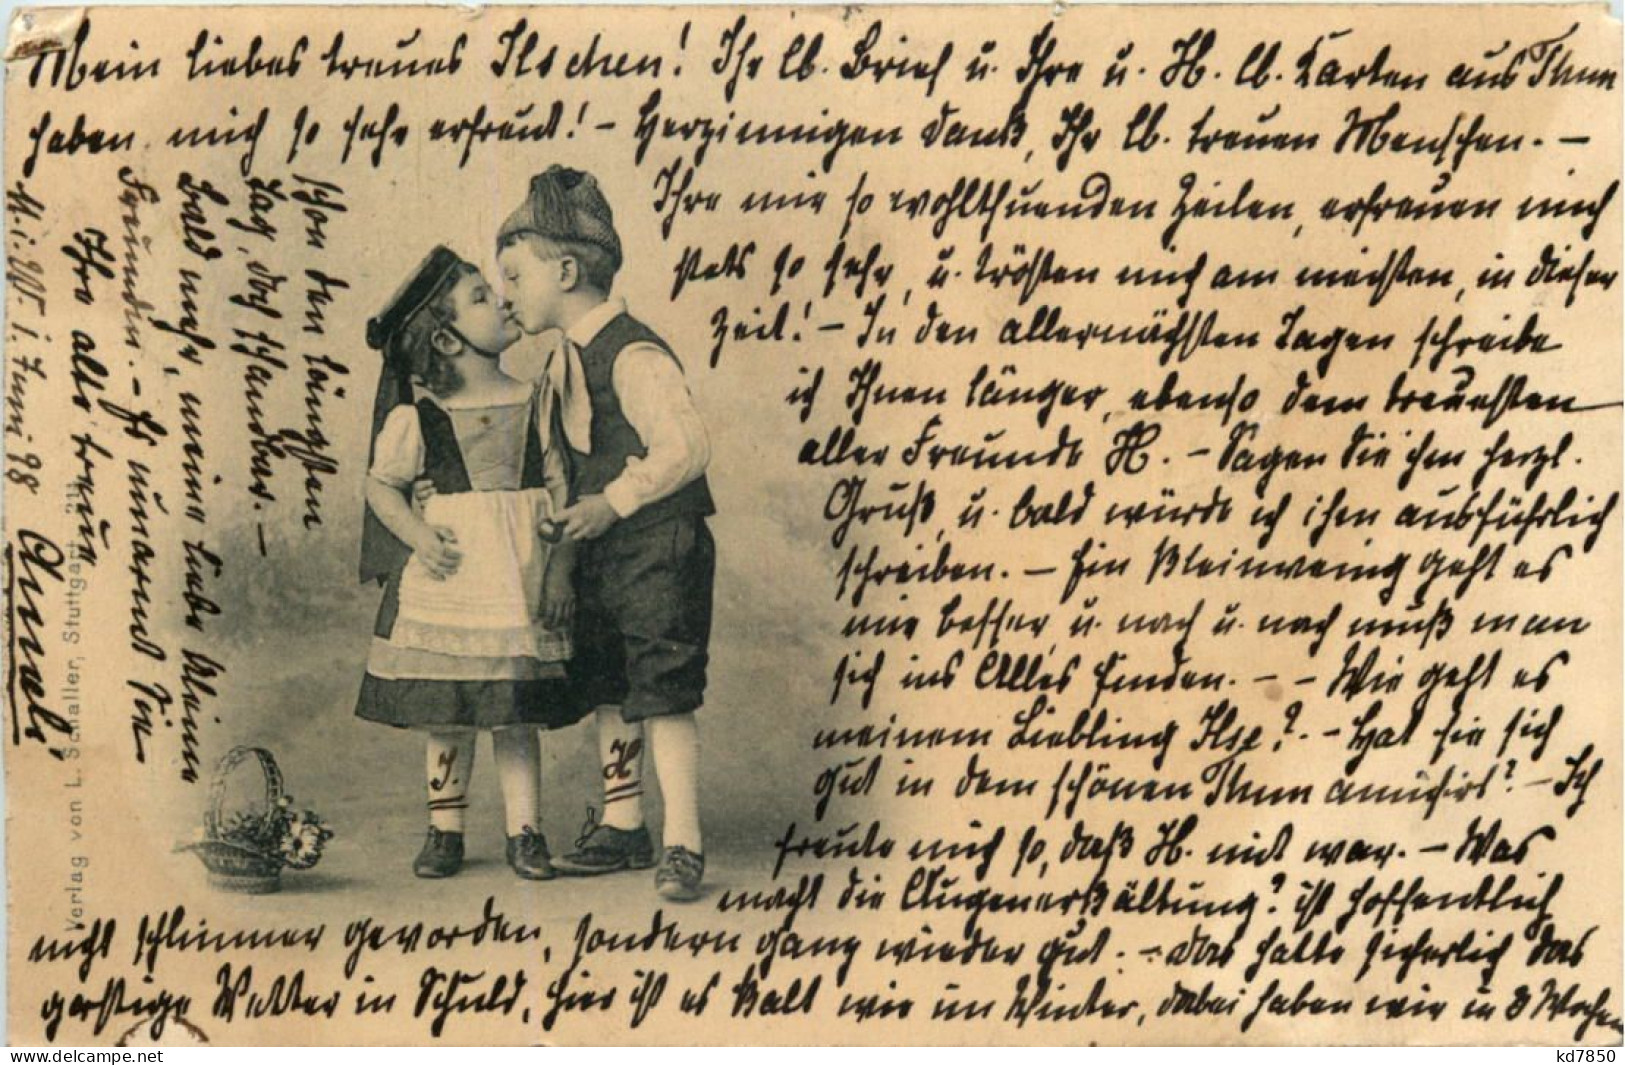 Mein liebes treues Ilschen! Ihr lb. Brief u. Ihre u. H. lb. Karten aus Thun
haben mich so sehr erfreut! – Herzinnigen Dank, Ihr lb. treuen Menschen. –
Ihre mir so wohlthuenden Zeilen, erfreuen mich
stets so sehr, u. trösten mich am meisten, in dieser
Zeit! – In den allernächsten Tagen schreibe
ich Ihnen länger, ebenso dem treuesten
aller Freunde H. – Sagen Sie ihm herzl.
Gruß, u. bald würde ich ihm ausführlich
schreiben. – Ein klein wenig geht es
mir besser, u. nach u. nach muß man
sich ins Alles finden. – – Wie geht es
meinem Liebling Ilse? – Hat sie sich
gut in dem schönen Thun amüsirt? – Ich
freute mich so, daß H. mit war. – Was
macht die Augenerkältung? ist hoffentlich
nicht schlimmer geworden, sondern ganz wieder gut. – Das hatte sicherlich das
garstige Wetter in Schuld, hier ist es kalt wie im Winter, dabei haben wir in 3 Wochen
schon den längsten
Tag, doch schandbar. –
Bald mehr, meine liebe kleine
Freundin. – Es umarmt Sie
Ihre alte treue
Ameli
M. i. W. i. Juni 98
J.
H
Verlag von L. Schaller, Stuttgart.
kd7850